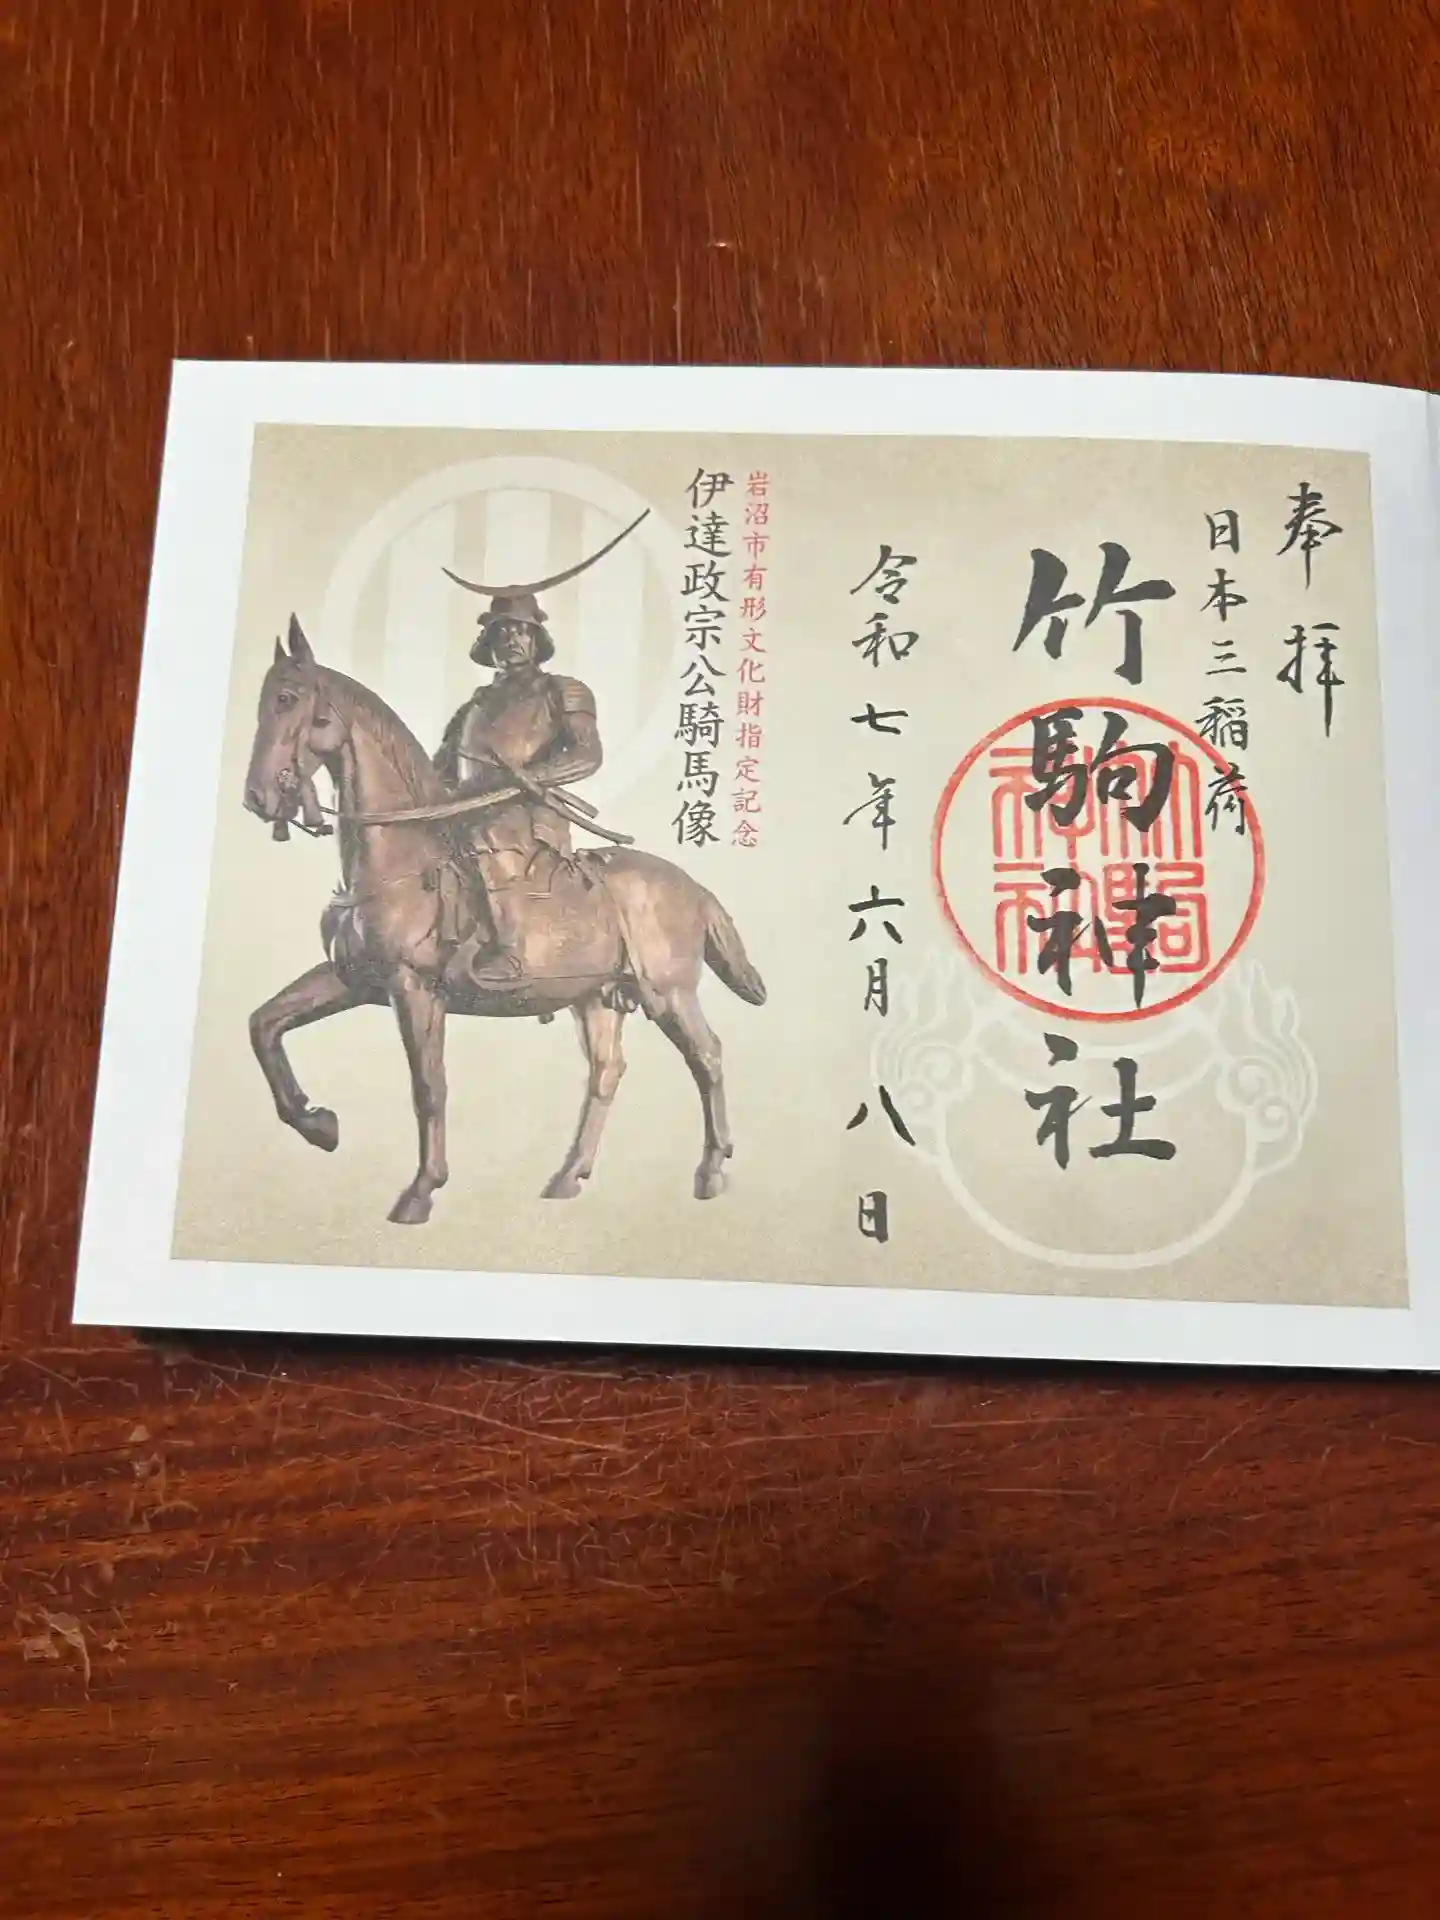 奉拝
日本三稲荷
竹駒神社
竹駒神社
令和七年六月八日
岩沼市有形文化財指定記念
伊達政宗公騎馬像